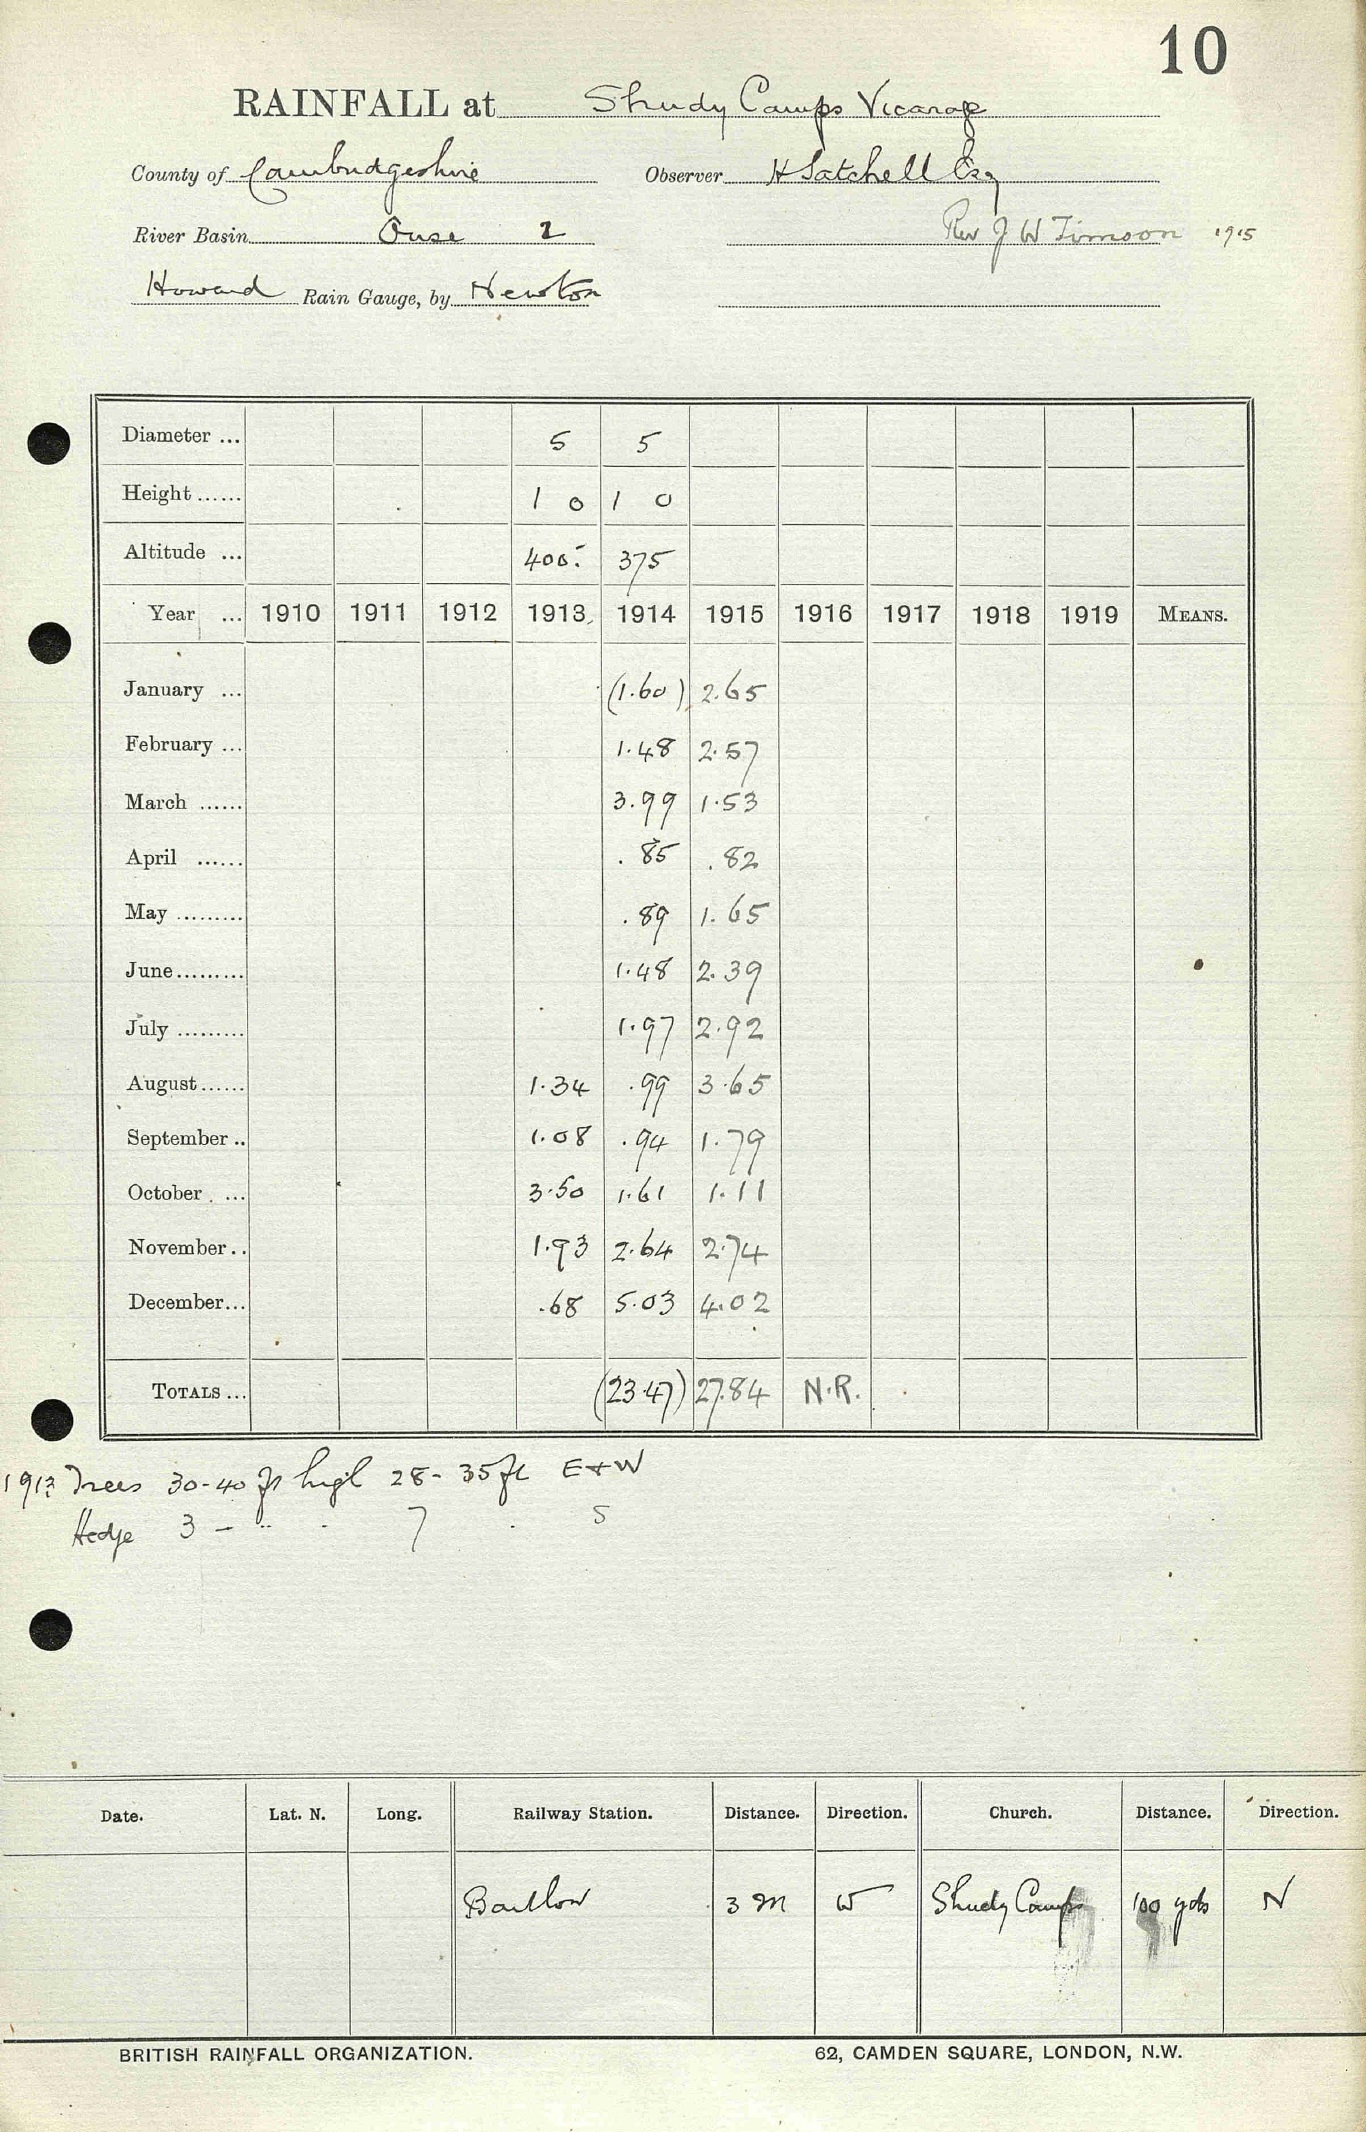 10
RAINFALL at Shudy Camps Vicarage
County of Cambridgeshire Observer H Satchell Esq
River Basin Ouse 2 Rev J W Timson 1915
Howard Rain Gauge, by Newton
Diameter ... 5 5
Height ...... 1 0 1 0
Altitude ... 400. 375
Year ... 1910 1911 1912 1913 1914 1915 1916 1917 1918 1919 MEANS.
January ... (1.60) 2.65
February ... 1.48 2.57
March ...... 3.99 1.53
April ...... .85 .82
May ......... .89 1.65
June......... 1.48 2.39
July ......... 1.97 2.92
August...... 1.34 .99 3.65
September .. 1.08 .94 1.79
October ... 3.50 1.61 1.11
November .. 1.93 2.64 2.74
December... .68 5.03 4.02
TOTALS ... (23.47) 27.84 N.R.
1913 Trees 30-40 ft high 28-35 ft E+W
Hedge 3 - " . 7 . S
Date. Lat. N. Long. Railway Station. Distance. Direction. Church. Distance. Direction.
Bartlow 3 M W Shudy Camps 100 yds N
BRITISH RAINFALL ORGANIZATION. 62, CAMDEN SQUARE, LONDON, N.W.